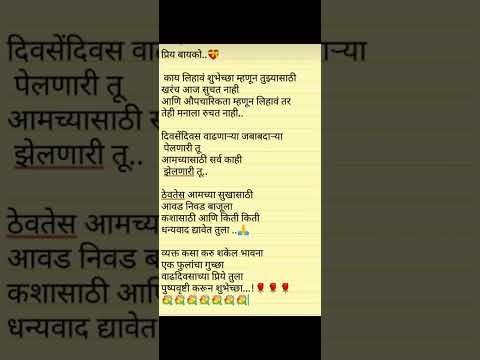 प्रिय बायको..💝
काय लिहावं शुभेच्छा म्हणून तुझ्यासाठी
खरंच आज सुचत नाही
आणि औपचारिकता म्हणून लिहावं तर
तेही मनाला रुचत नाही..
दिवसेंदिवस वाढणाऱ्या जबाबदाऱ्या
पेलणारी तू
आमच्यासाठी सर्व काही
झेलणारी तू..
ठेवतेस आमच्या सुखासाठी
आवड निवड बाजूला
कशासाठी आणि किती किती
धन्यवाद द्यावेत तुला ..🙏
व्यक्त कसा करु शकेल भावना
एक फुलांचा गुच्छा
वाढदिवसाच्या प्रिये तुला
पुष्पवृष्टी करून शुभेच्छा...!🌹🌹🌹
💐💐💐💐💐💐💐